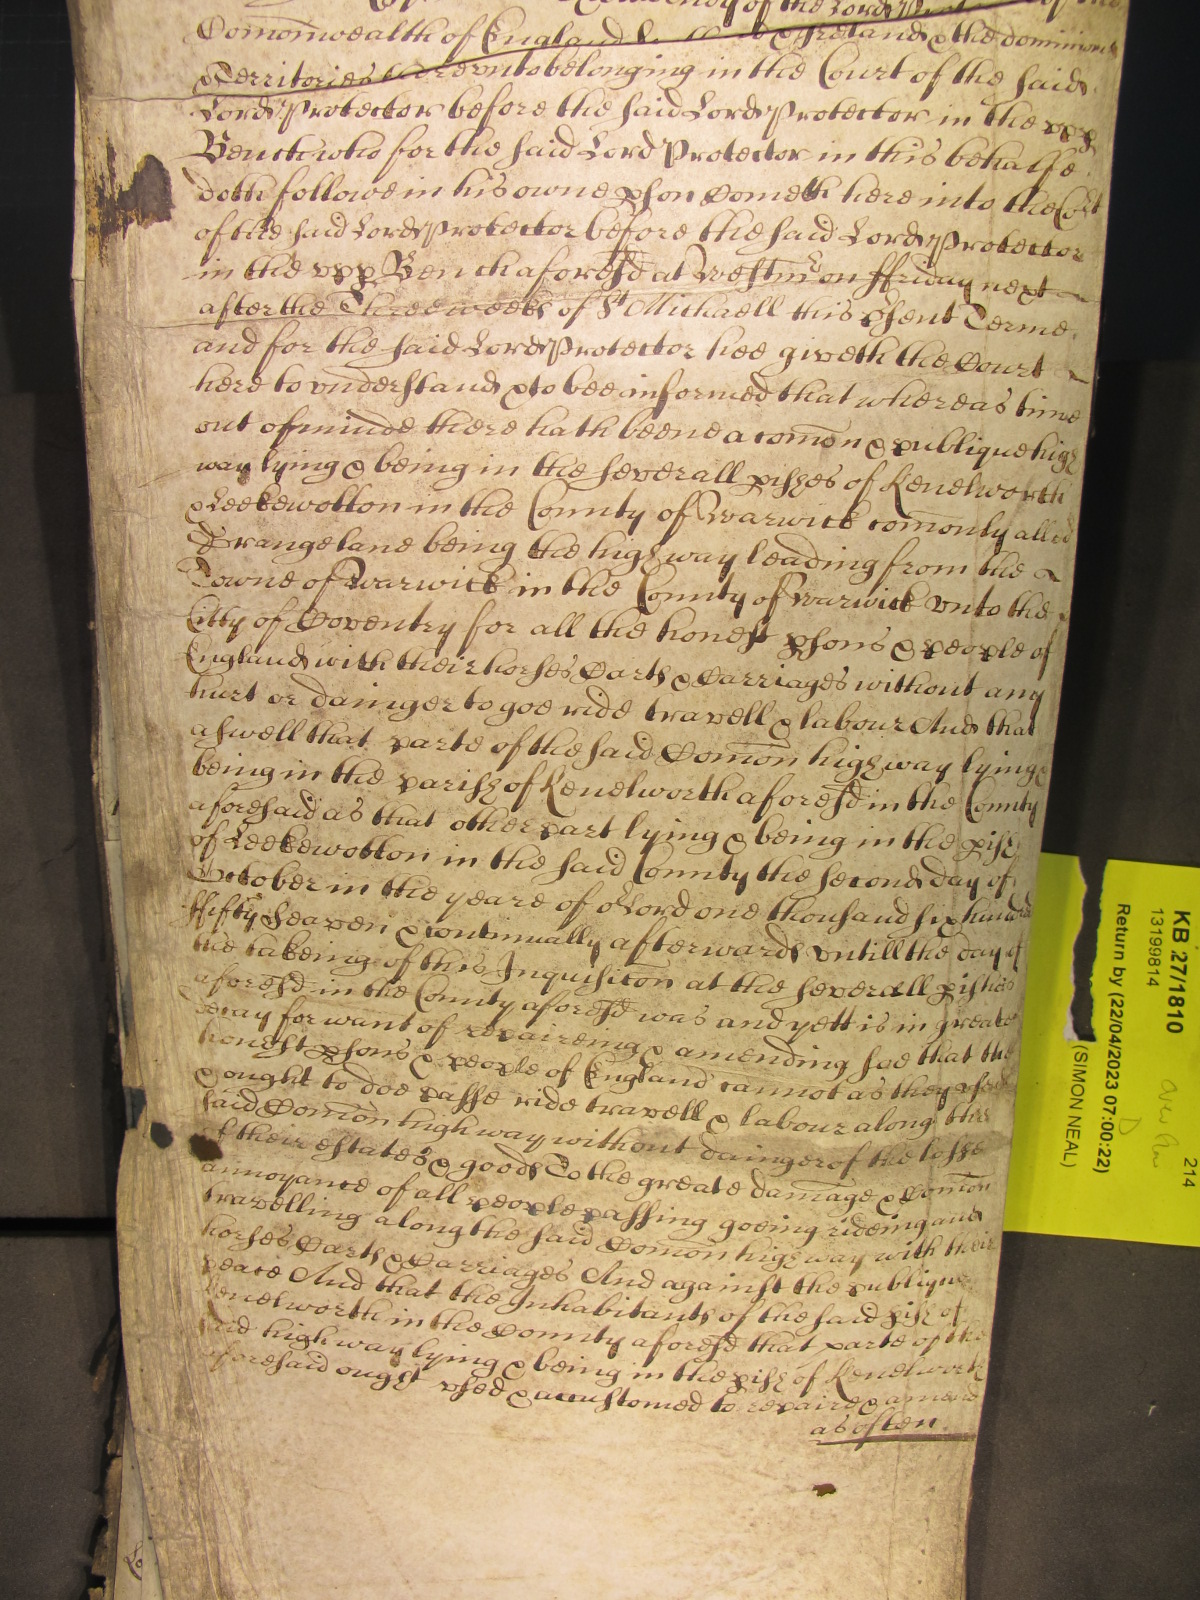 of the Lord Prot of the
Comonwealth of England & Ireland & the dominions
& Territories thereunto belonging in the Court of the said
Lord Protector before the said Lord Protector in the upp
Bench who for the said Lord Protector in this behalfe
doth followe in his owne pson Cometh here into the Cort
of the said Lord Protector before the said Lord Protector
in the upp Bench aforesd at Westmr on ffriday next
after the Three weeks of St Michaell this psent Terme
and for the said Lord Protector hee giveth the Court
here to understand & to bee informed that whereas time
out of minde there hath beene a comon & publique high
way lying & being in the severall pishes of Kenelworth
& Leekewotton in the County of Warwick comonly alled
Grangelane being the high way leading from the
Towne of Warwick in the County of Warwick unto the
Citty of Coventry for all the honest psons & people of
England with their horses Carts & Carriages without any
hurt or dainger to goe ride travell & labour And that
aswell that parte of the said Comon high way lying &
being in the parish of Kenelworth aforesd in the County
aforesaid as that other part lying & being in the pish
of Leekewotton in the said County the second day of
October in the yeare of or Lord one thousand six hundred
ffifty seaven & continually afterwards untill the day of
the takeing of this Inquisicon at the severall pishes
aforesd in the County aforesd was and yett is in greate
decay for want of repaireing & amending soe that the
honest psons & people of England cannot as they used
& ought to doe passe ride travell & labour along the
said Comon high way without dainger of the losse
of their estates & goods To the greate damage & comon
annoyance of all people passing goeing rideing and
travelling along the said Comon high way with their
horses Carts & Carriages And against the publique
peace And that the Inhabitants of the said pish of
Kenelworth in the County aforesd that parte of the
said high way lying & being in the pish of Kenelworth
aforesaid ought used & accustomed to repaire & amend
as often
KB 27/1810
13199814
Return by (22/04/2023 07:00:22)
(SIMON NEAL)
214
D